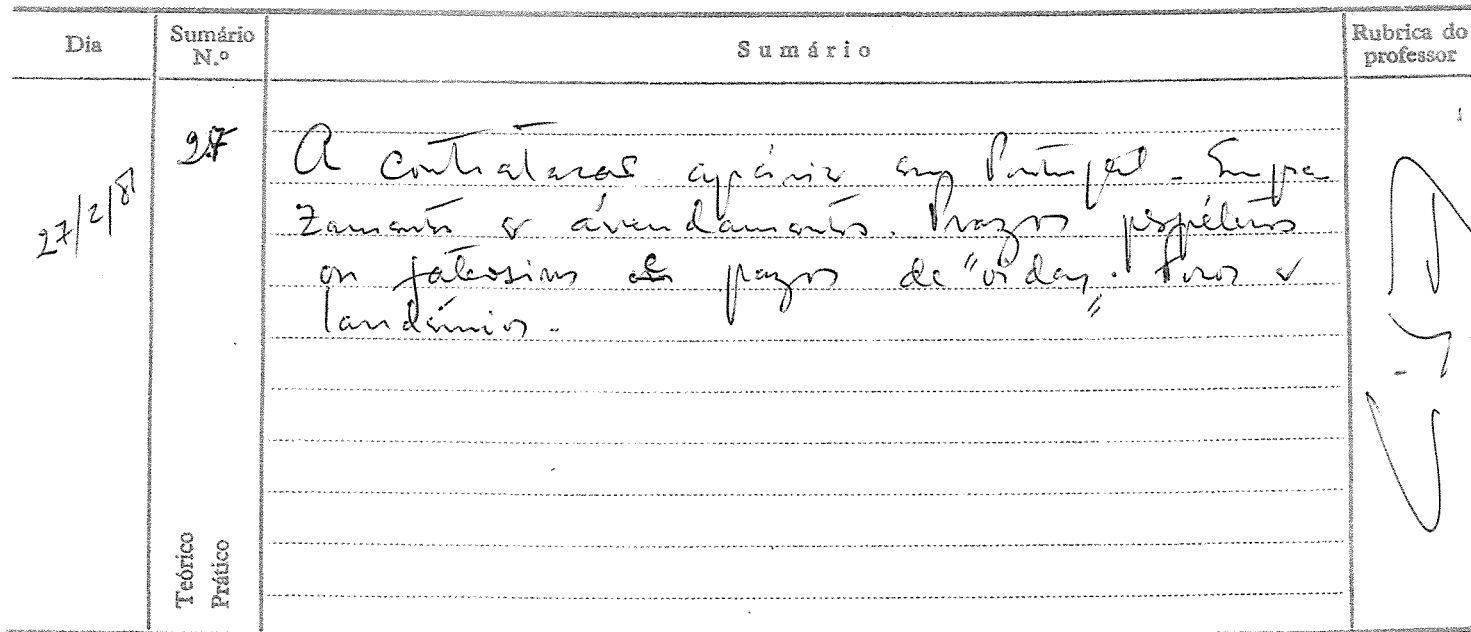 Dia
Sumário N.º
Sumário
Rubrica do professor
27/2/81
27
A contratação agrária em Portugal - Empra
zamentos e arrendamentos. Prazos perpétuos
ou fateosins e prazos de "vidas". Foros e
laudémios.
Teórico
Prático